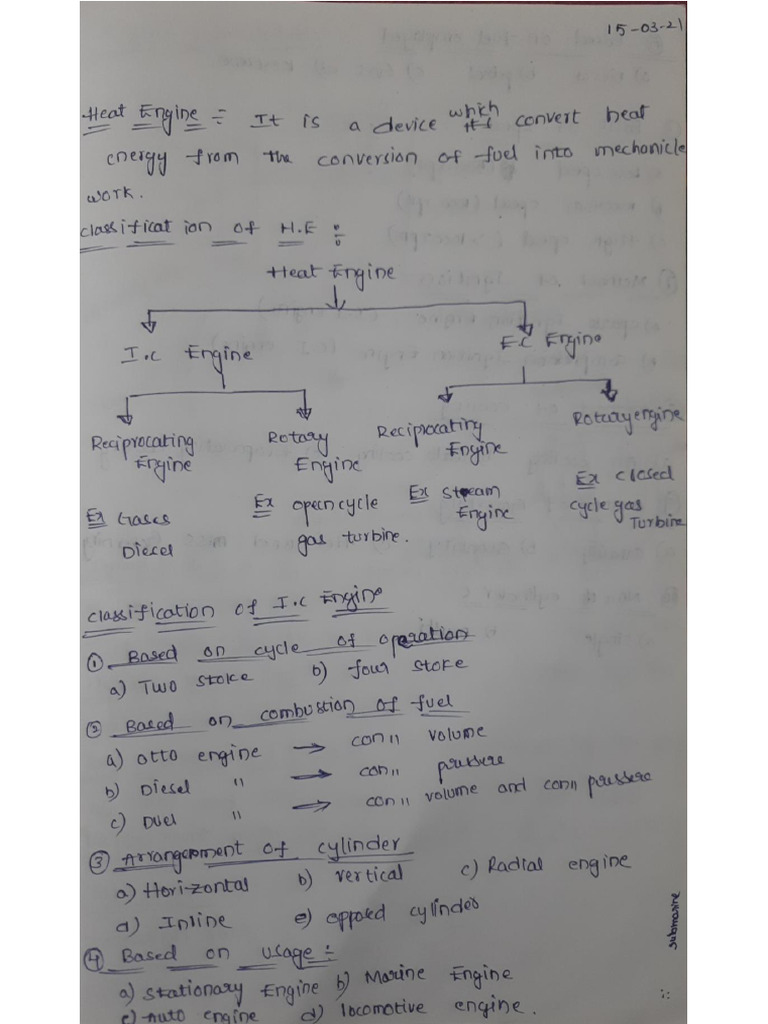 15-03-21
Heat Engine ÷ It is a device which convert heat
energy from the conversion of fuel into mechanicle
work.
classification of H.E ÷
Heat Engine
I.c Engine
E.C Engine
Reciprocating Engine
Rotary Engine
Reciprocating Engine
Rotary engine
Ex Gases Diesel
Ex open cycle gas turbine.
Ex steam Engine
Ex closed cycle gas Turbine
classification of I.c Engine
① Based on cycle of operation
a) Two stoke b) four stoke
② Based on combustion of fuel
a) otto engine → con" volume
b) Diesel " → con" pressere
c) Duel " → con" volume and con" pressere
③ Arrangement of cylinder
a) Horizontal b) vertical c) Radial engine
d) Inline e) opposed cylinder
④ Based on usage ÷
a) stationary Engine b) Marine Engine
c) Auto engine d) locomotive engine.
submarine